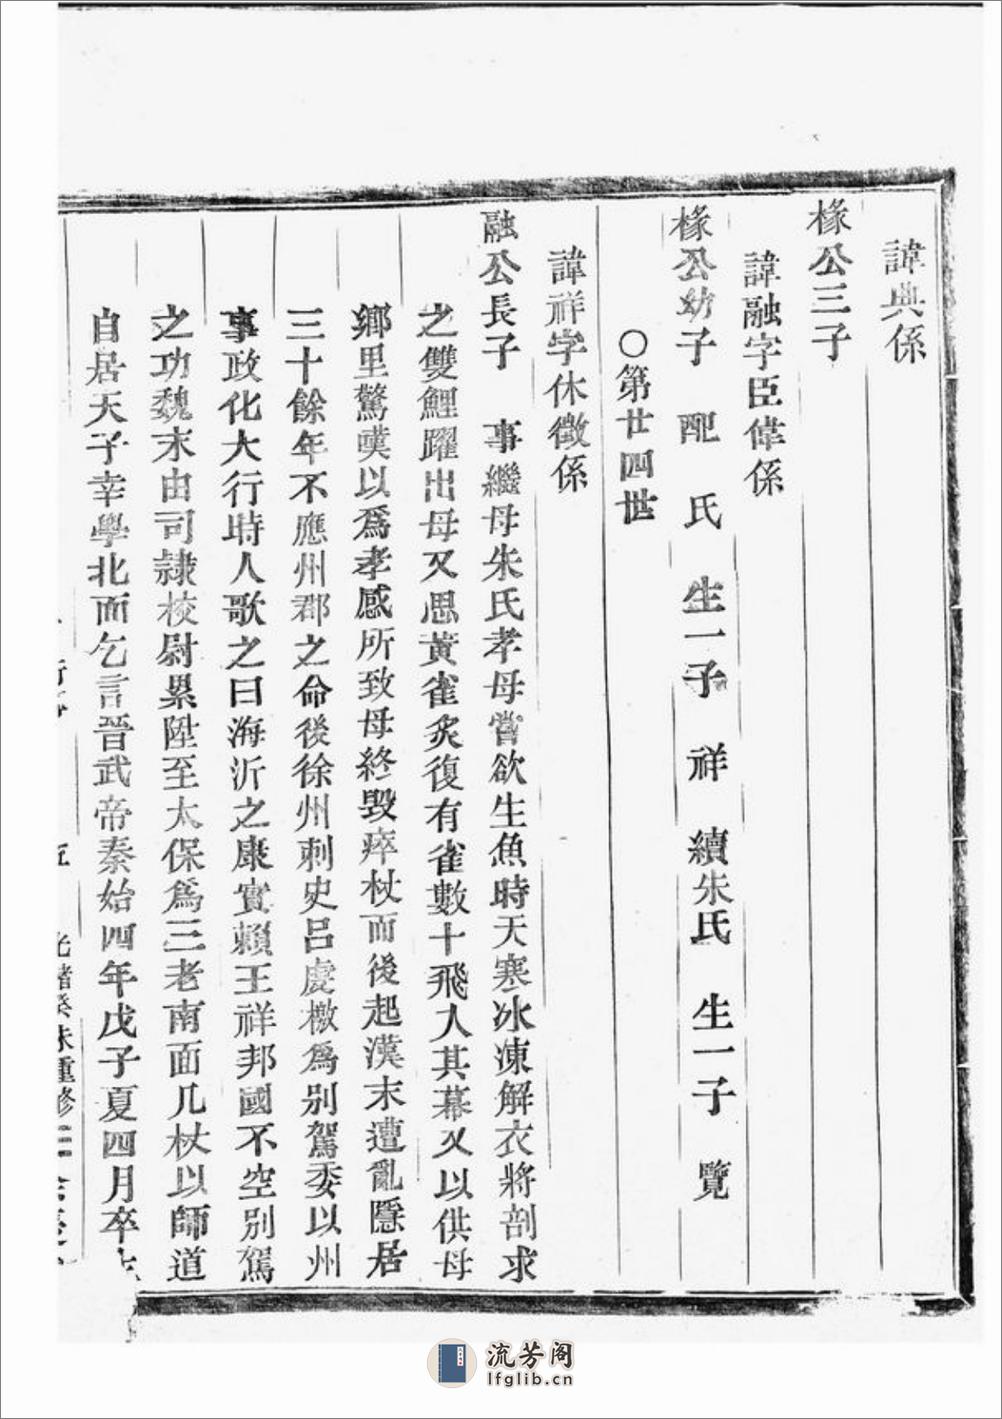 諱典係
椽公三子
諱融字臣偉係
椽公幼子 配 氏 生一子 祥 續朱氏 生一子 覽
○第廿四世
諱祥字休徵係
融公長子 事繼母朱氏孝母嘗欲生魚時天寒冰凍解衣將剖求
之雙鯉躍出母又思黃雀炙復有雀數十飛人其幕又以供母
鄉里驚嘆以爲孝感所致母終毀瘁杖而後起漢末遭亂隱居
三十餘年不應州郡之命後徐州刺史呂虔檄爲别駕委以州
事政化大行時人歌之曰海沂之康實賴王祥邦國不空别駕
之功魏末由司隷校尉累陞至太保爲三老南面几杖以師道
自居天子幸學北面乞言晉武帝秦始四年戊子夏四月卒
五
光緒癸未重修三
流芳阁
lfglib.cn